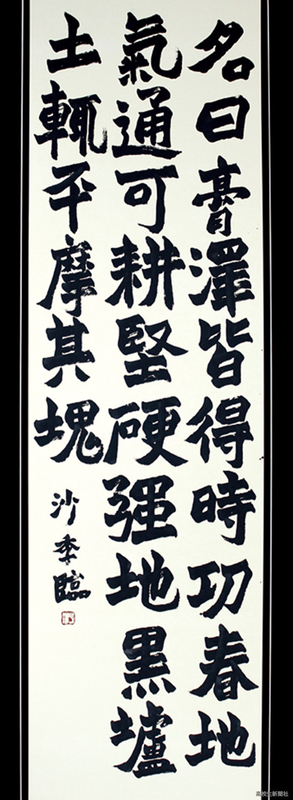 名曰膏澤皆得時功春地
氣通可耕堅硬强地黒壚
土輒平摩其塊
沙季臨
高校生新聞社